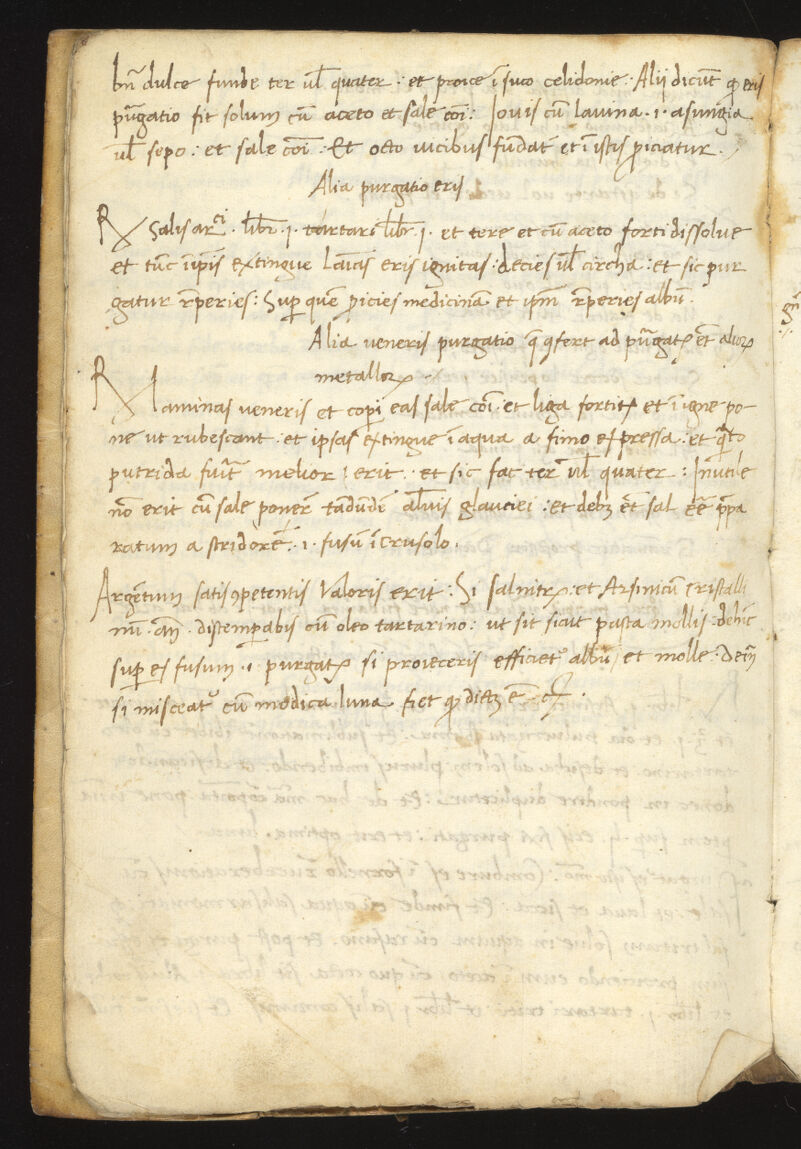 bn̄ dulce funde ter ul̄ quater : et proice ī suco celidonie : Alij dicūt ꝙ eris
pūrgatio fit solum cū aceto et sale cōi : Jouis cū lauina .i. asungia
ul̄ sepo : et sale cōi : Et octo uicibus fūdat̄ et ī istis ꝓiciatur .
Alia purgatio eris
℞ Salis ar̄ci . libr̄ .j. tartari libr̄ .j. et tere et cū aceto forti dissolue
et tūc ī ip̄is extingue lāīas eris ignitas : decies ul̄ circha : et sic pur
gatur r̄peries : Suꝑ quē ꝓicies medicinā et ip̄m r̄peries albū .
Alia veneris purgatio q̄ ꝯfert ad pūrgatꝝ et̄ alioꝝ
metalloꝝ
℞ Laminas veneris et coꝑi eas sale cōi et liga fortitꝝ et ī igne po-
ne ut rubescant : et ipsas extingue ī aqua a fimo expressa : et q̄to
putrida fuīt melior erit . et sic fac ter ul̄ quater : Inutile
nō erit cū sale poner̄ tādūdē al̄uis glauciei : et debꝫ et̄ sal eē p̄pa
ratum a stridorē . .i. fusū ī crusolo .
Argētum satis ꝯpetentis valoris erit : Si salnitrꝝ : et Arsinicū cristalli
nū . an̄ . distemꝑabis cū oleo tartarino : ut sit sicut pasta mollis : dehīc
suꝑ es fusum .i. purgatꝝ si proieceris efficiet᷑ albū et molle : Deīn
si misceat᷑ cū modica luna fiet ꝙ dictꝫ ē